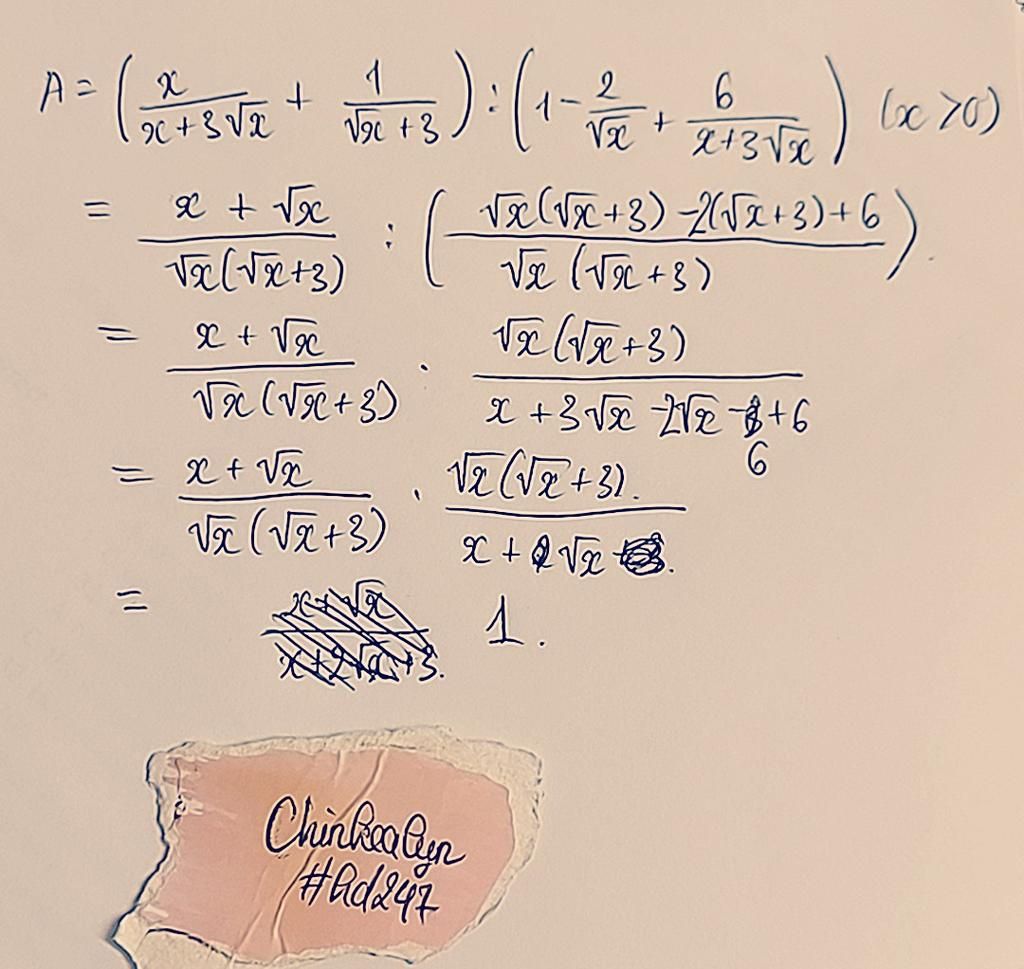 A = (x/(x+3√x) + 1/(√x+3)) : (1 - 2/√x + 6/(x+3√x)) (x>0)
= (x+√x)/(√x(√x+3)) : ((√x(√x+3) -2(√x+3)+6)/(√x(√x+3))).
= (x+√x)/(√x(√x+3)) . (√x(√x+3))/(x+3√x-2√x-6+6)
= (x+√x)/(√x(√x+3)) . (√x(√x+3).)/(x+√x.)
= 1.
#Ad247